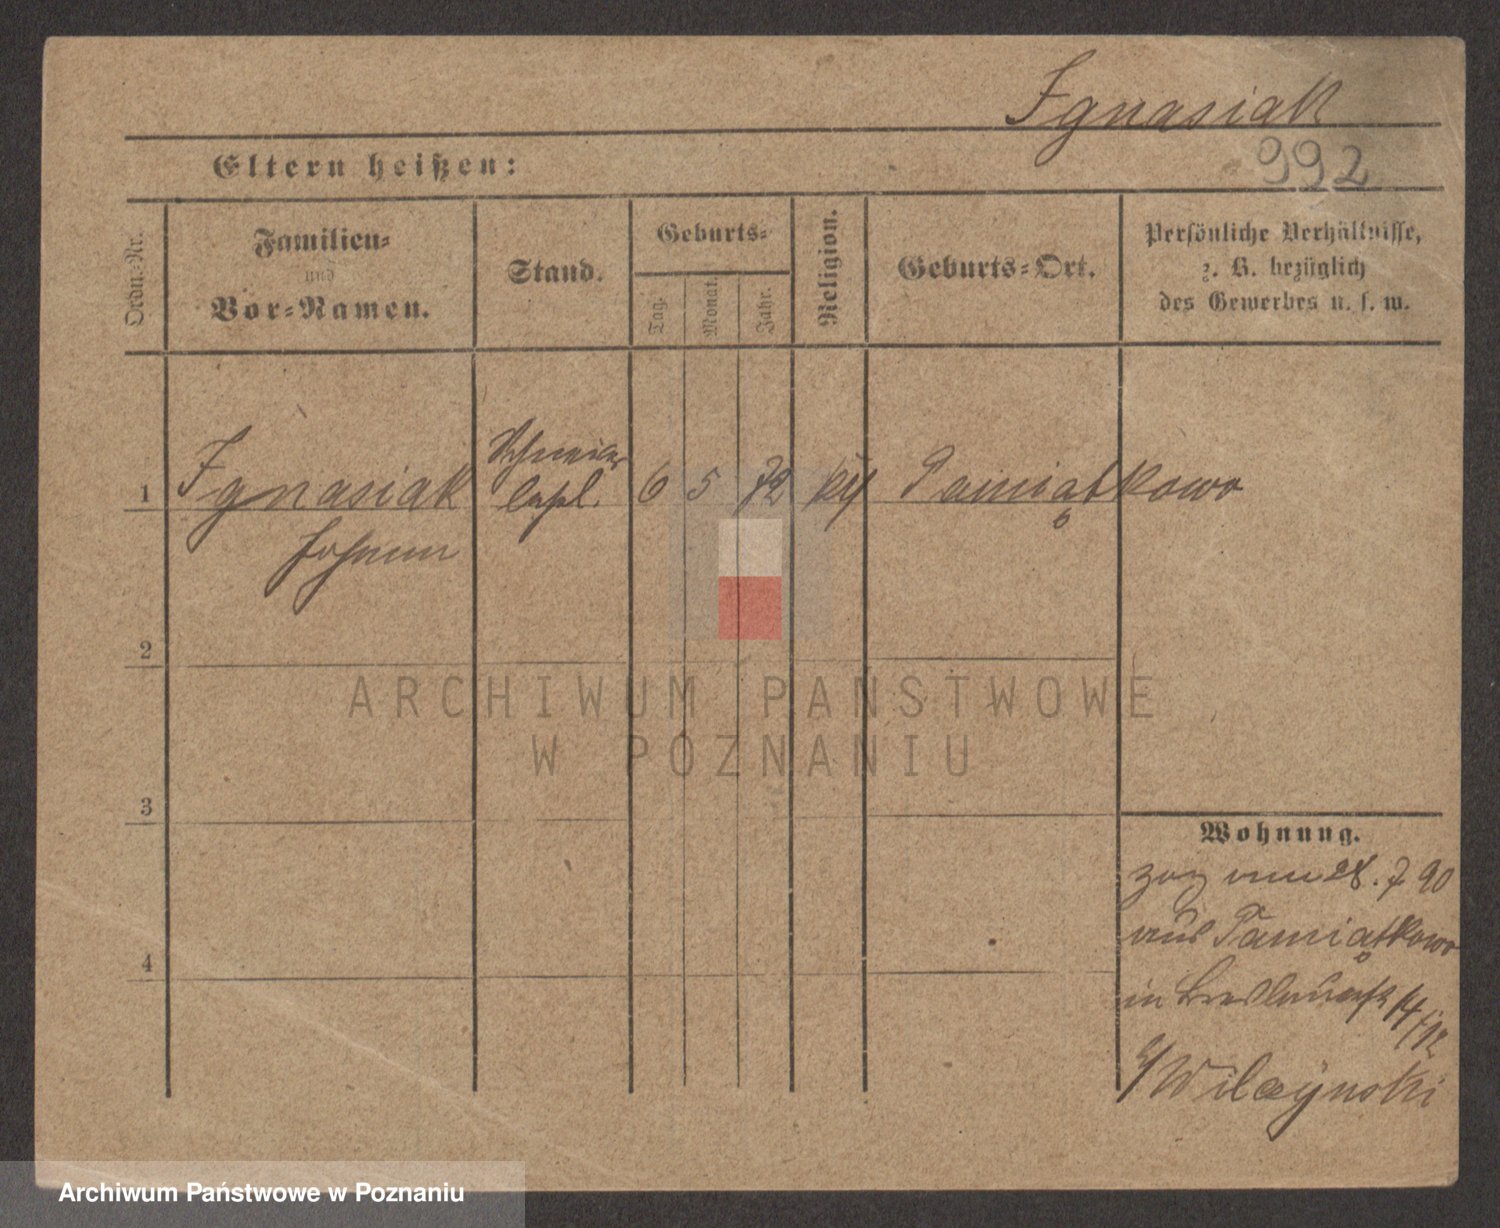 Ignasiak
992
Eltern heißen:
Ordn.-Nr.
Familien-
und
Vor-Namen.
Stand.
Geburts-
Tag.
Monat.
Jahr.
Religion.
Geburts-Ort.
Persönliche Verhältnisse,
z. B. bezüglich
des Gewerbes u. s. w.
1 Ignasiak Schneider 6 5 72 kth Pamiątkowo
Johann
2
3
4
Wohnung.
zog am 28. 7 90
aus Pamiątkowo
in Breslauerstr 14/12
b/Wilczynski
ARCHIWUM PAŃSTWOWE
W POZNANIU
Archiwum Państwowe w Poznaniu